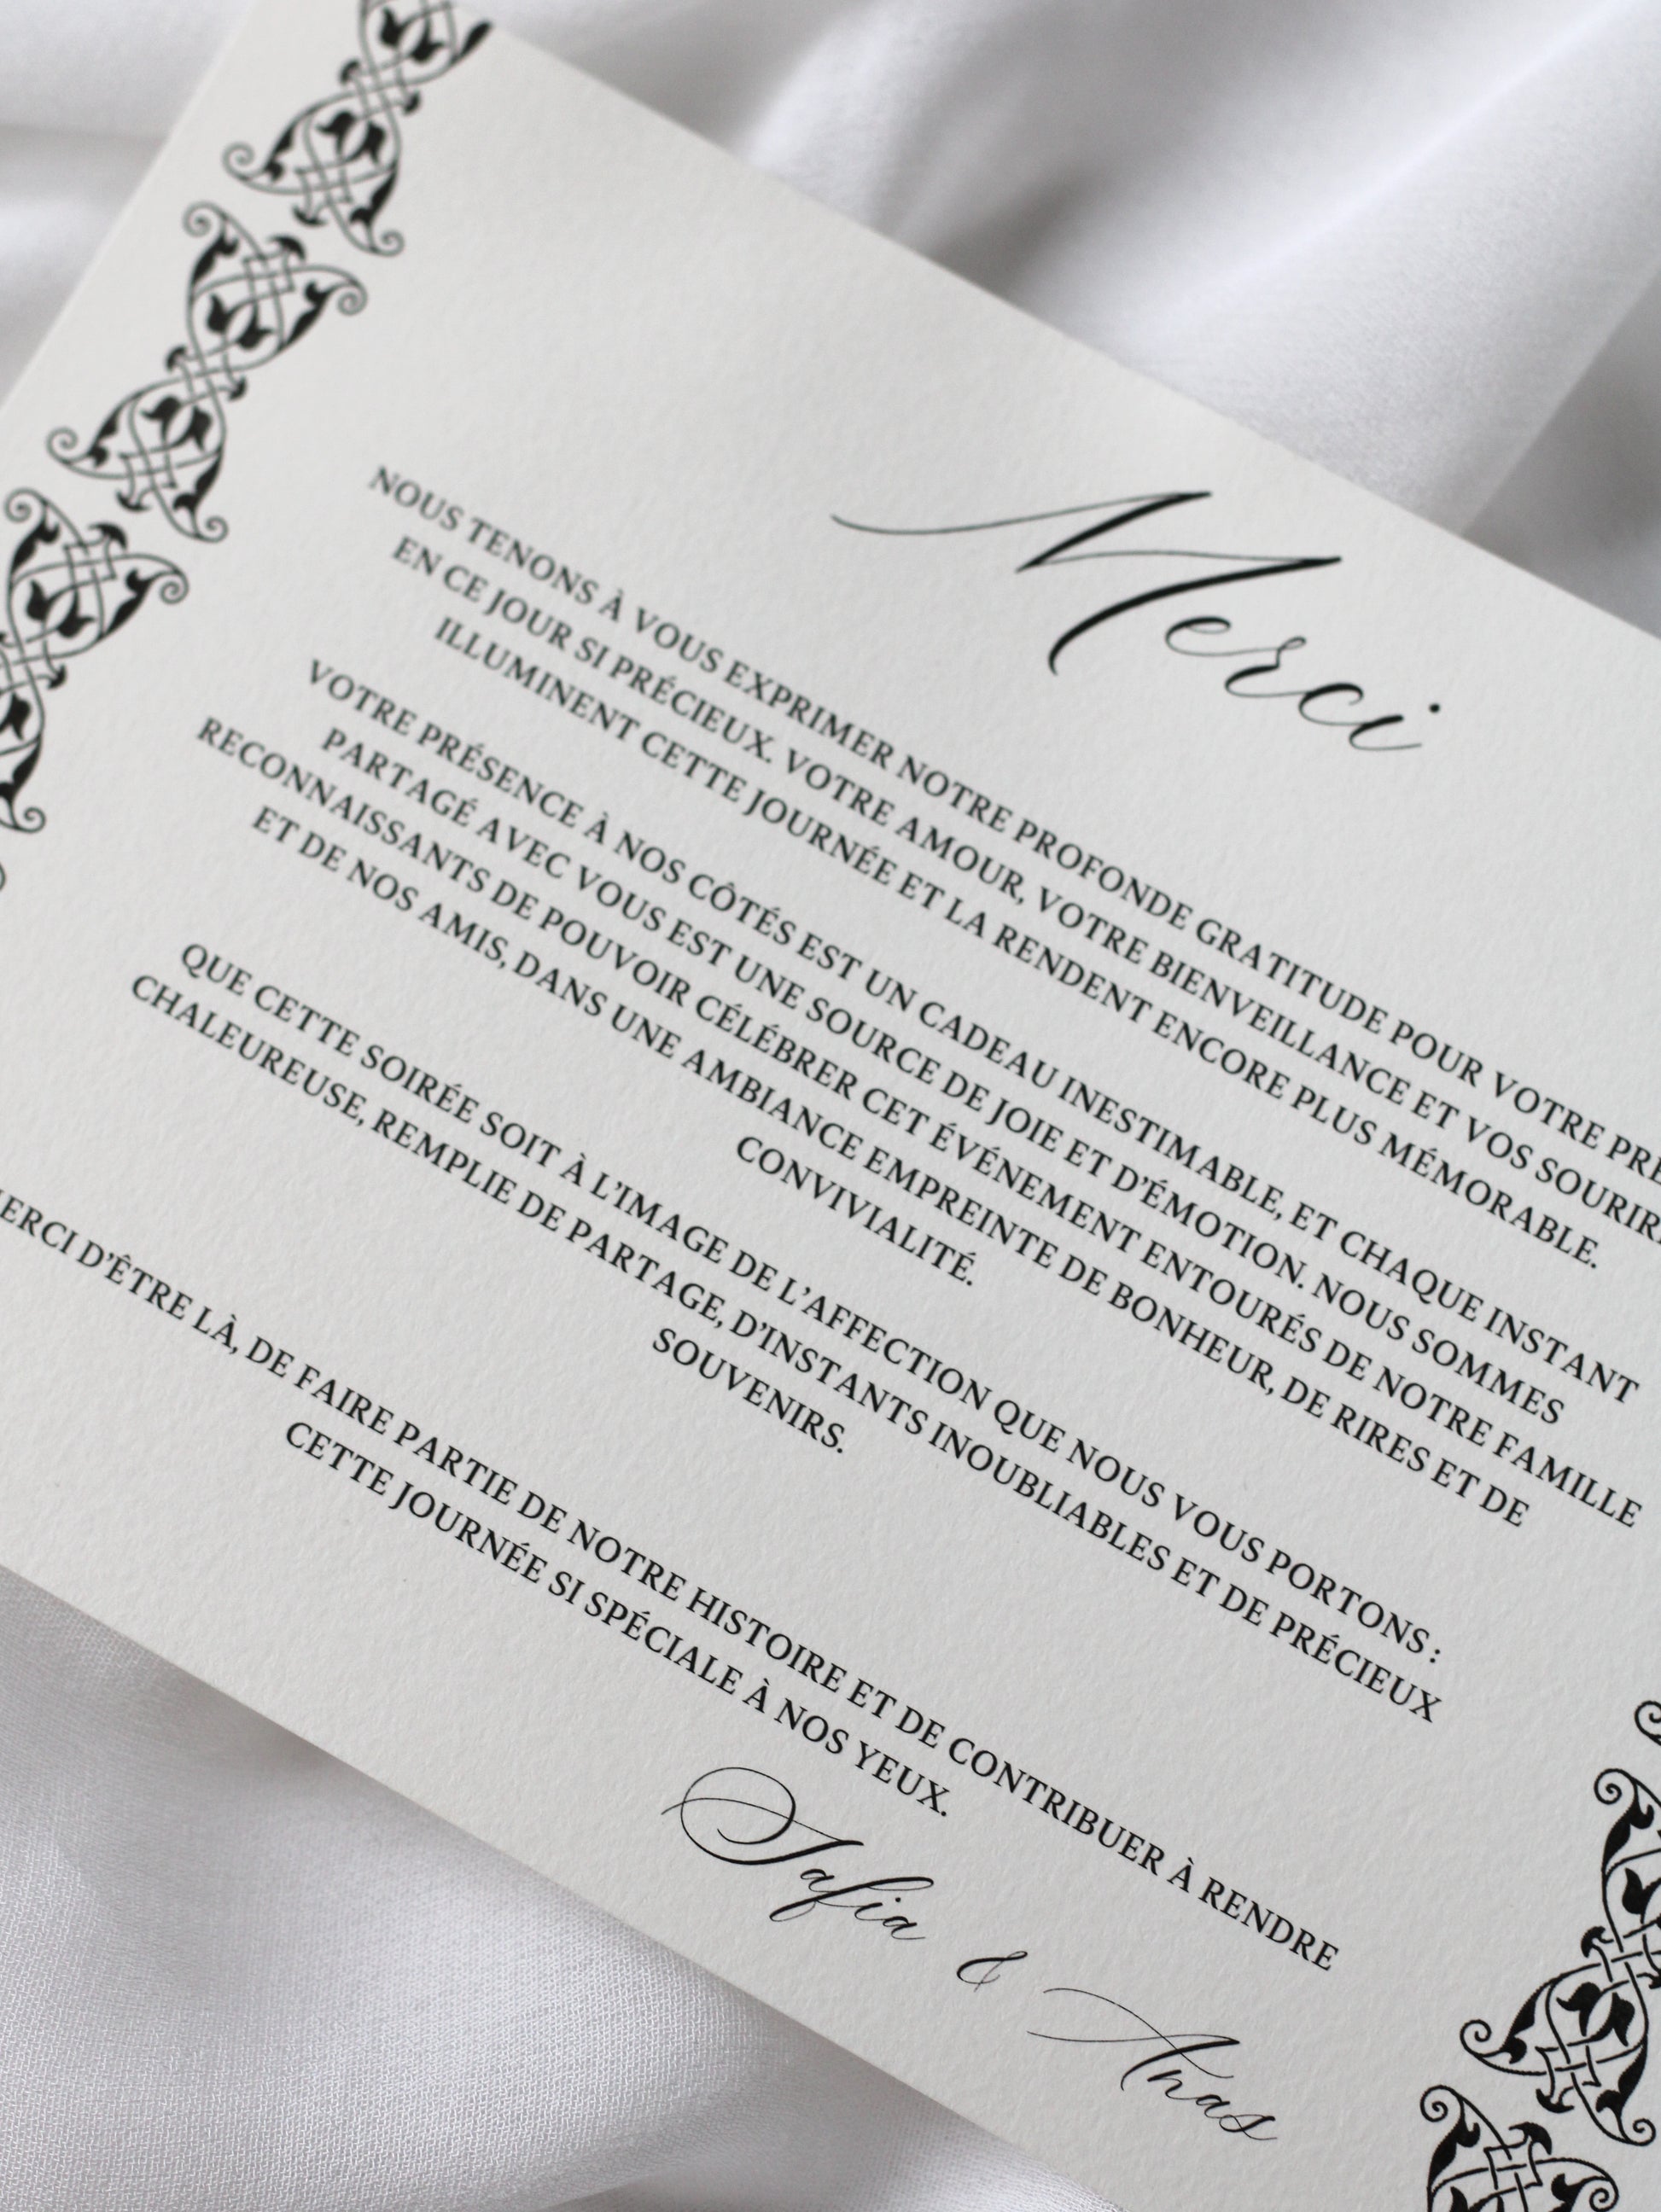 Merci
NOUS TENONS À VOUS EXPRIMER NOTRE PROFONDE GRATITUDE POUR VOTRE
EN CE JOUR SI PRÉCIEUX. VOTRE AMOUR, VOTRE BIENVEILLANCE ET VOS
ILLUMINENT CETTE JOURNÉE ET LA RENDENT ENCORE PLUS MÉMORABLE.
VOTRE PRÉSENCE À NOS CÔTÉS EST UN CADEAU INESTIMABLE, ET CHAQUE INSTANT
PARTAGÉ AVEC VOUS EST UNE SOURCE DE JOIE ET D'ÉMOTION. NOUS SOMMES
RECONNAISSANTS DE POUVOIR CÉLÉBRER CET ÉVÉNEMENT ENTOURÉS DE NOTRE FAMILLE
ET DE NOS AMIS, DANS UNE AMBIANCE EMPREINTE DE BONHEUR, DE RIRES ET DE
CONVIVIALITÉ.
QUE CETTE SOIRÉE SOIT À L'IMAGE DE L'AFFECTION QUE NOUS VOUS PORTONS :
CHALEUREUSE, REMPLIE DE PARTAGE, D'INSTANTS INOUBLIABLES ET DE PRÉCIEUX
SOUVENIRS.
ERCI D'ÊTRE LÀ, DE FAIRE PARTIE DE NOTRE HISTOIRE ET DE CONTRIBUER À RENDRE
CETTE JOURNÉE SI SPÉCIALE À NOS YEUX.
Safia & Anas